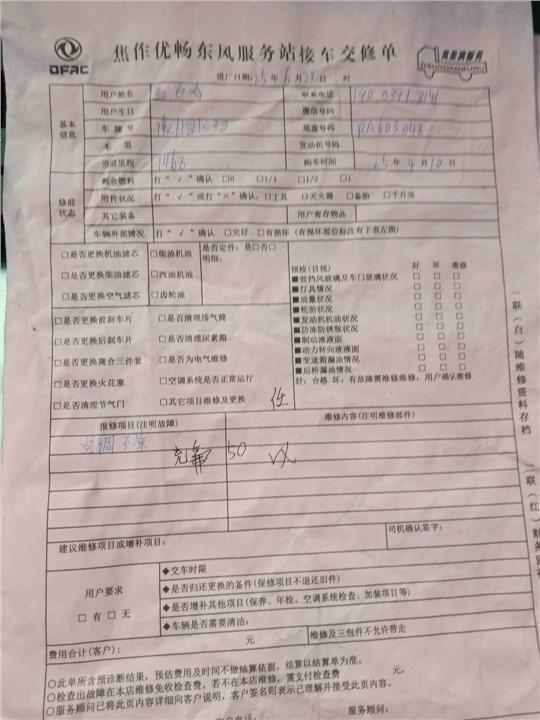 DFAC
焦作优畅东风服务站接车交修单
真意满服务
进厂日期: 25 年 6 月 28 日 时
基本信息
用户姓名 联系电话
用户生日 微信号码
车牌号 底盘号码 RA603048
车型 发动机号码
当前里程 购车时间 25 年 4 月 10 日
修前状态
剩余燃料 打“√”确认 □0 □1/4 □1/2 □1
附件状况 打“√”或打“×”确认: □工具 □灭火器 □备胎 □千斤顶
其它装备 用户寄存物品
车辆外部情况 打“√”确认 □完好 □有损坏 (有损坏部位标注有下表左图)
□是否更换机油滤芯 □柴油机油
□是否更换柴油滤芯 □汽油机油
□是否更换空气滤芯 □齿轮油
是否定件: 是□否□
明细:
□是否更换前刹车片 □是否清理排气筒
□是否更换后刹车片 □是否清理尿素箱
□是否更换离合三件套 □是否为电气维修
□是否更换火花塞 □空调系统是否正常运行
□是否清理节气门 □其它项目维修及更换
预检(目视) 好 坏 维修
■前挡风玻璃及车门玻璃状况 □ □ □
■灯具情况 □ □ □
■油量状况 □ □ □
■轮胎状况 □ □ □
■发动机机油状况 □ □ □
■防冻防锈瓶状况 □ □ □
■制动液液面 □ □ □
■动力转向液液面 □ □ □
■变速箱漏油情况 □ □ □
■后桥漏油情况 □ □ □
好: 合格 坏: 有故障需维修维修: 用户确认维修
报修项目(注明故障) 维修内容(注明维修部件)
空调不凉 充氟 50
建议维修项目或增补项目:
司机确认签字:
用户要求
□ 有 □ 无
◆交车时限
◆是否归还更换的备件(保修项目不退还旧件)
◆是否增补其他项目(保养、年检、空调系统检查、加装项目等)
◆车辆是否需要清洁:
费用合计(客户): 元 维修及三包件不允许带走
○此单所含预诊断结果, 预估费用及时间不做结算依据, 结算以结算单为准。
○检查出故障在本店维修免收检查费, 若不在本店维修, 需支付检查费 元,
○服务顾问已将此页内容详细向客户说明, 客户签名则表示已理解并接受此页内容。
客户电话: 服务顾问:
一联(白)随维修资料存档
二联(红)